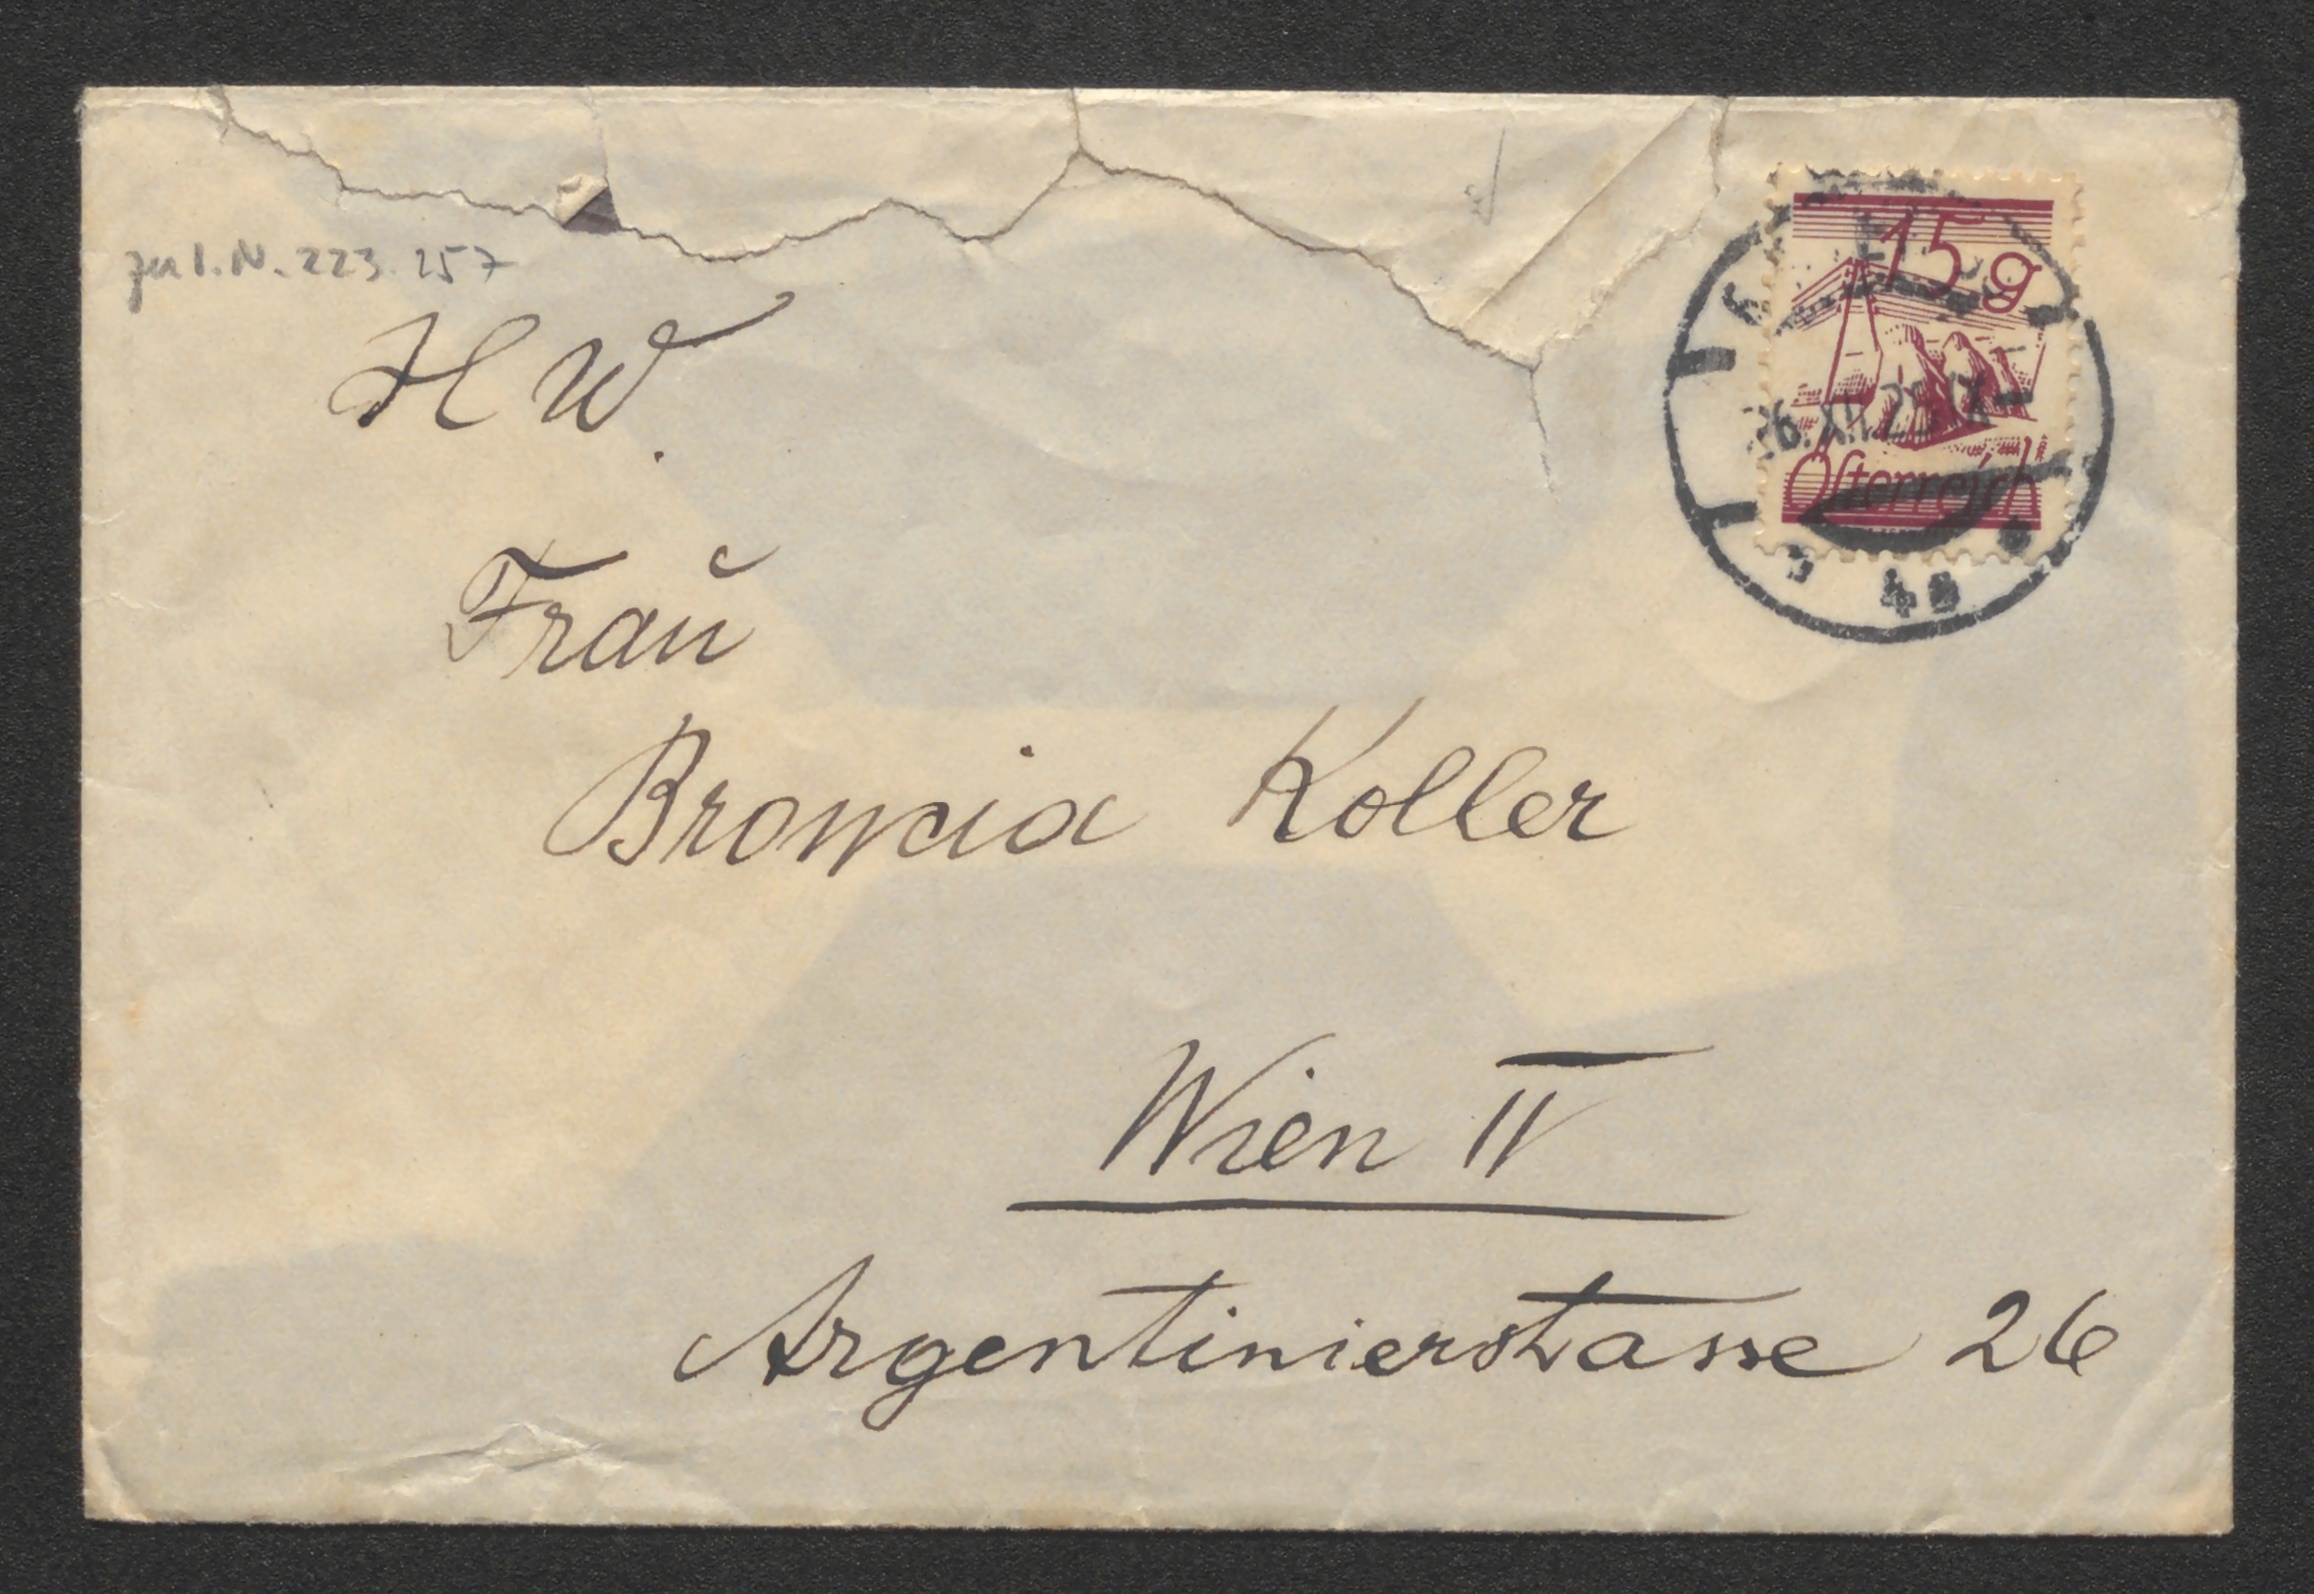 zu I.N. 223.257
H W.
Frau
Broncia Koller
Wien IV
Argentinierstrasse 26
15 g
26. XII. 25 IX
Österreich